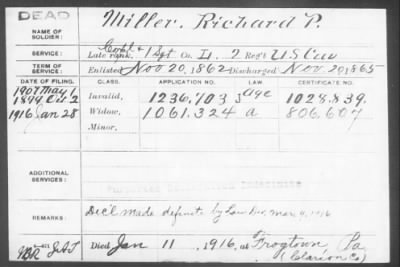 DEAD
NAME OF SOLDIER:
Miller, Richard P.
SERVICE:
Corpl & 1 Sgt
Late rank, Co. L. 2 Reg't U S Cav
TERM OF SERVICE:
Enlisted Nov 20, 1862 Discharged Nov. 20, 1865
DATE OF FILING. CLASS. APPLICATION NO. LAW. CERTIFICATE NO.
1907 May 1
1899 Oct 2 Invalid, 1236.703 age 1028.839.
1916 Jan 28 Widow, 1061.324 a 806,607
Minor,
ADDITIONAL SERVICES:
REMARKS: Dec'l made definite by Law Div, Mar 4, 1916
Died Jan 11, 1916, at Frogtown Pa
(Clarion Co)